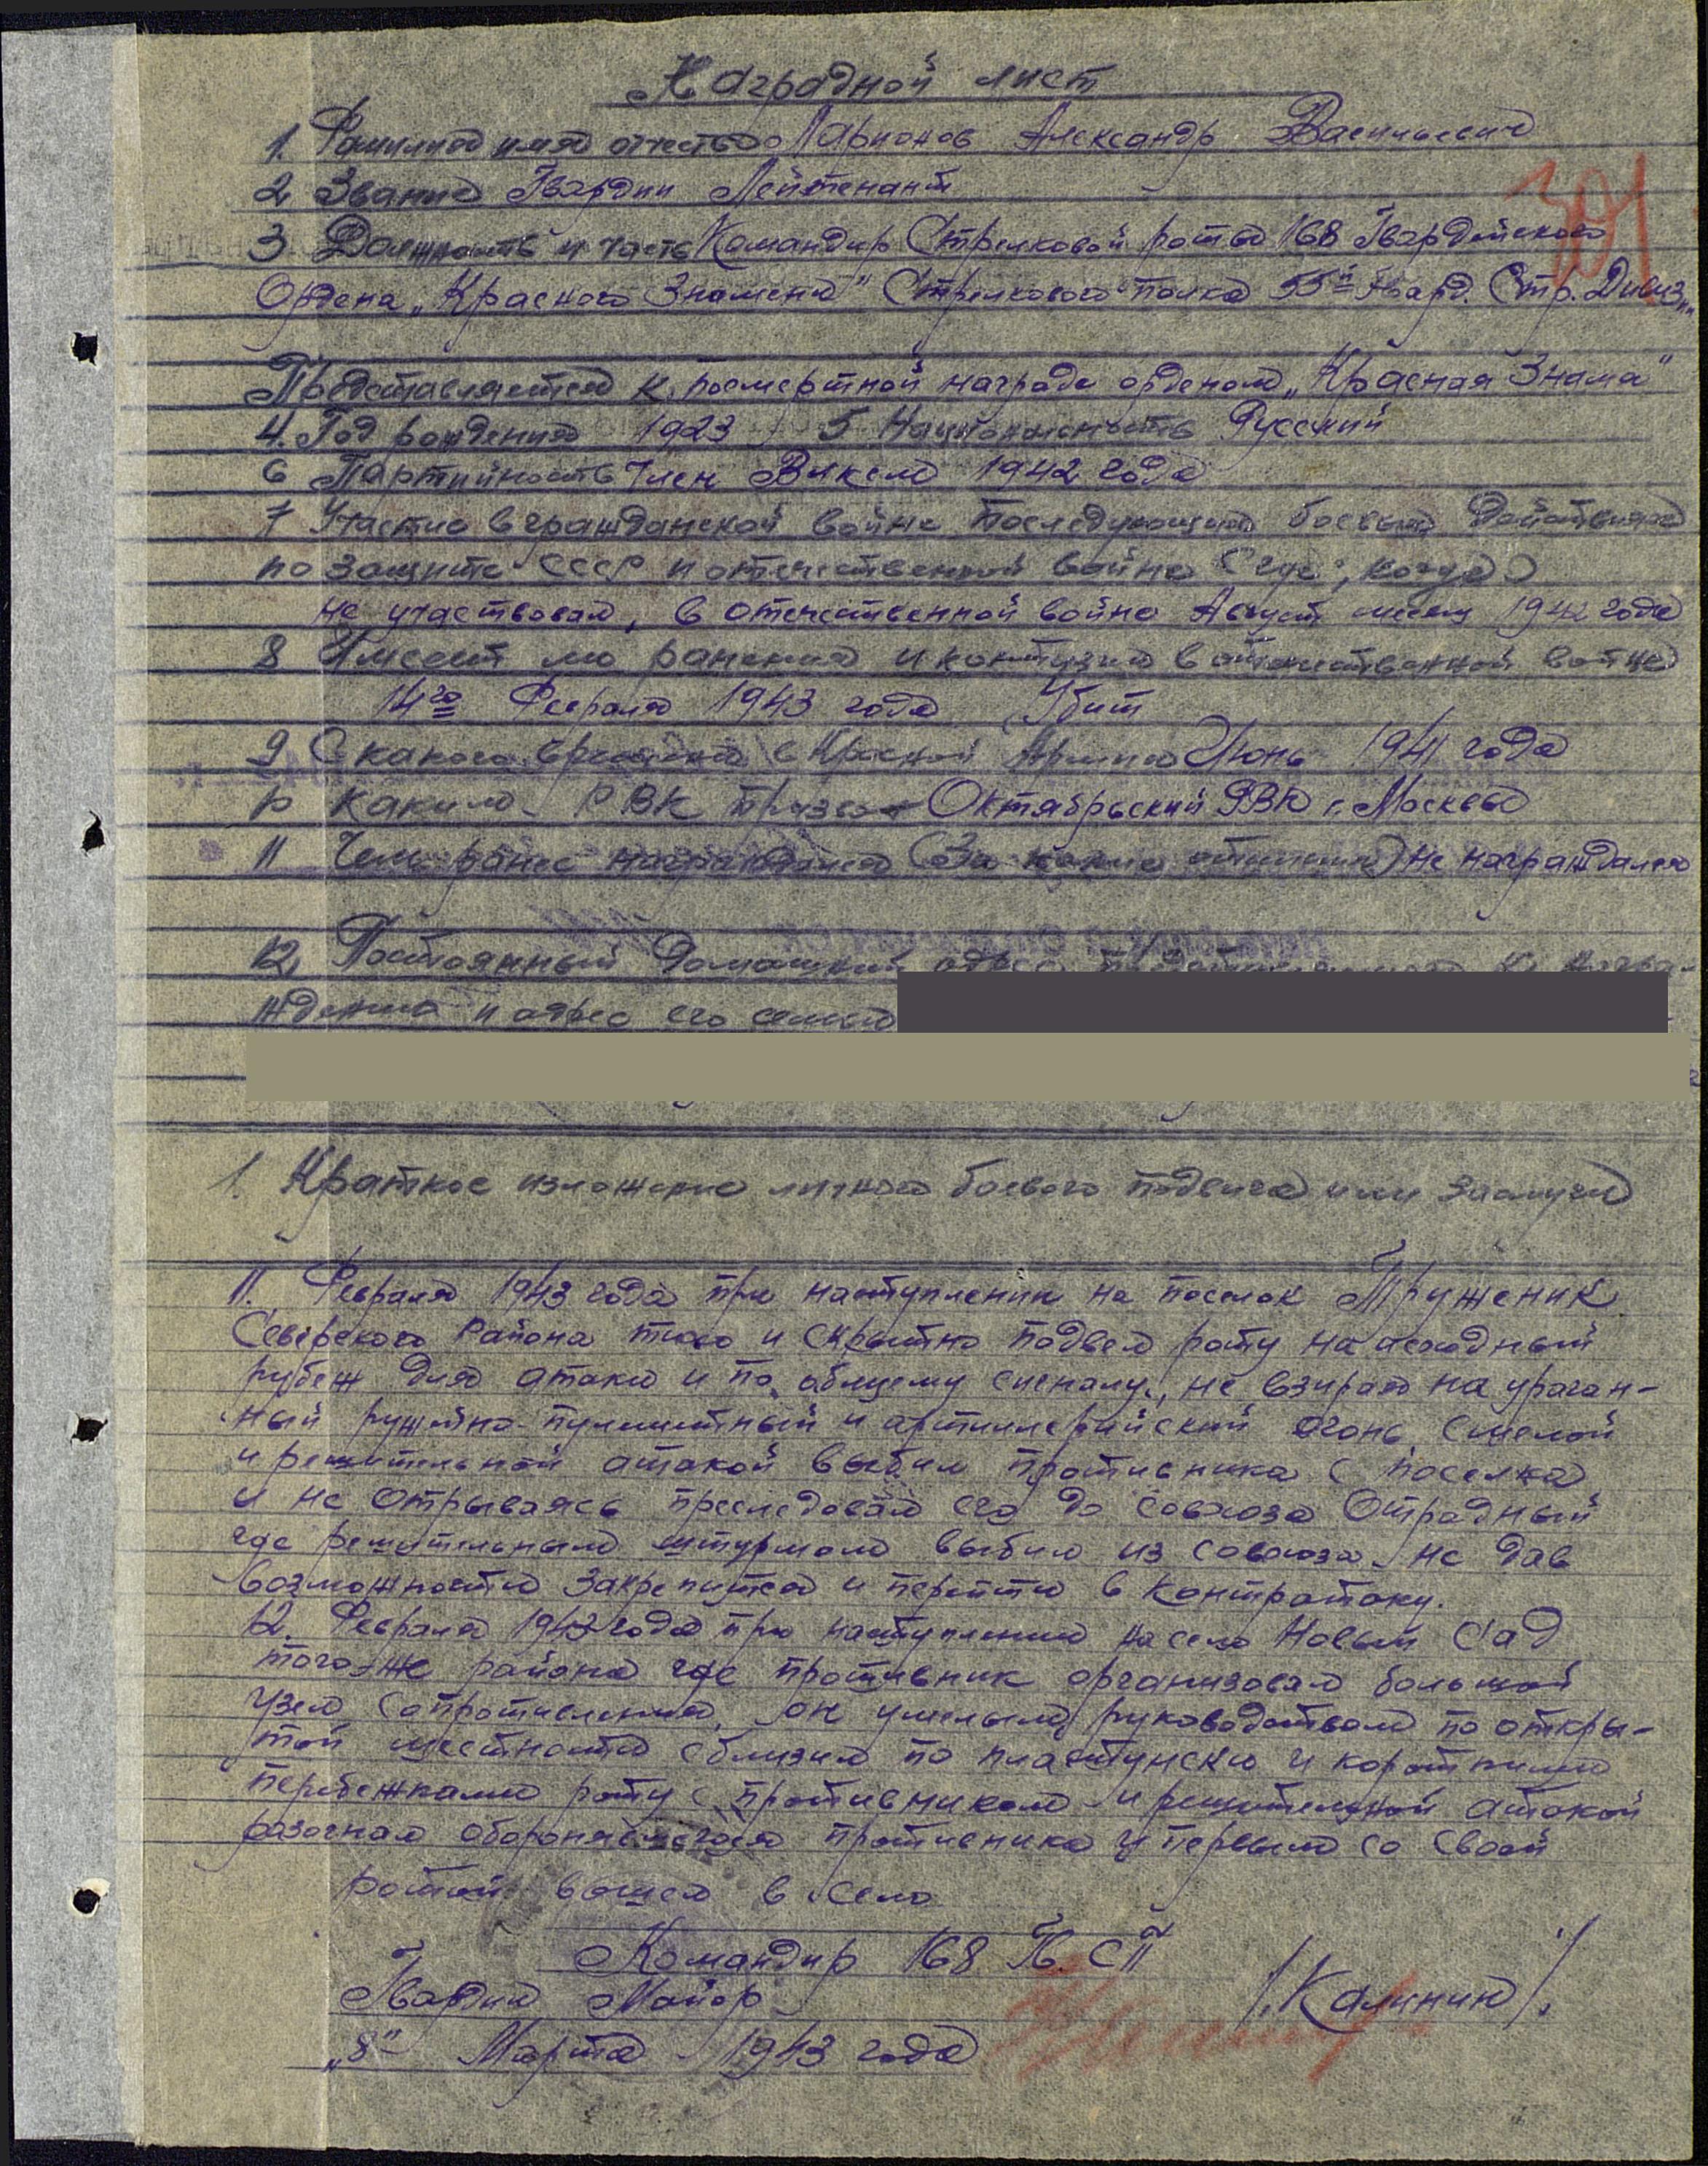 Наградной лист
1. Фамилия имя отчество Ларионов Александр Васильевич
2 Звание Гвардии Лейтенант
301
3. Должность и часть Командир Стрелковой роты 168 Гвардейского
Ордена „Красного Знамени" Стрелкового полка 55й Гвард. Стр. Дивизии
Представляется к посмертной награде орденом „Красная Знамя"
4. Год рождения 1923 5 Национальность Русский
6 Партийность Член Влксм 1942 года
7 Участие в гражданской войне последующие боевые действия
по защите СССР и отечественной войне (где, когда)
не участвовал, в отечественной войне Август месяц 1942 года
8 Имеет ли ранения и контузии в отечественной войне
14го Февраля 1943 года Убит
9 С какого времени в Красной Армии Июнь 1941 года
10 Каким РВК призван Октябрьский РВК г. Москвы
11 Чем ранее награждался (За какие отличия) не награждался
12 Постоянный домашний адрес к награ-
ждению и адрес его семьи
1. Краткое изложение личного боевого подвига или заслуги
11. Февраля 1943 года при наступлении на поселок Труженик
Северского Района тихо и скрытно подвел роту на исходный
рубеж для атаки и по общему сигналу, не взирая на ураган-
ный ружейно-пулеметный и артиллерийский огонь смелой
и решительной атакой выбил противника с поселка
и не отрываясь преследовал его до совхоза Отрадный
где решительным штурмом выбил из совхоза не дав
возможности закрепится и перейти в контратаку.
12. Февраля 1943 года при наступлении на село Новый Сад
того-же района где противник организовал большой
узел сопротивления, он умелым руководством по откры-
той местности сблизил по пластунски и короткими
перебежками роту с противником и решительной атакой
разогнал обороняемегося противника и первым со своей
ротой вошел в село
Командир 168 Гв. СП
Гвардии Майор /Калинин/.
„8" Марта 1943 года